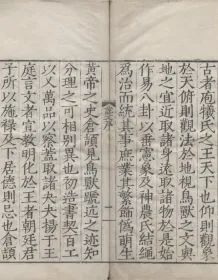 古者庖犧氏之王天下也仰則觀象
於天俯則觀法於地視鳥獸之文與
地之宜近取諸身遠取諸物於是始
作易八卦以垂憲象及神農氏結繩
爲治而統其事庶業其繁飾僞萌生
黃帝之史倉頡見鳥獸蹏迒之迹知
分理之可相別異也初造書契百工
以乂萬品以察蓋取諸夬夬揚于王
庭言文者宣敎明化於王者朝廷君
子所以施祿及下居德則忌也倉頡